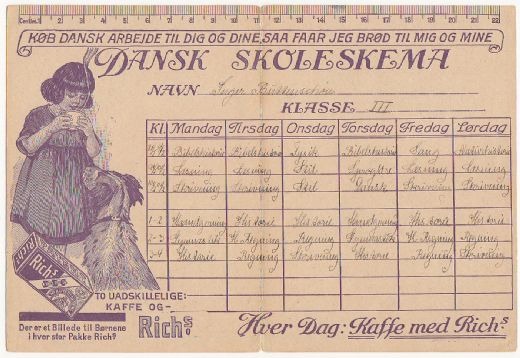 Centim. 1 2 3 4 5 6 7 8 9 10 11 12 13 14 15 16 17 18 19 20 21 22
KØB DANSK ARBEJDE TIL DIG OG DINE, SAA FAAR JEG BRØD TIL MIG OG MINE
DANSK SKOLESKEMA
NAVN Inger
KLASSE III
Kl. Mandag Tirsdag Onsdag Torsdag Fredag Lørdag
Bibelhistorie Bibelhistorie Fysik Bibelhistorie Sang Naturhistorie
Læsning Læsning Stil Læsning Læsning
Skrivning Skrivning Stil Dansk Skrivning Skrivning
1-2 Haandgerning Historie Historie Haandgerning Historie Historie
2-3 H. Regning Regning Gymnastik H. Regning Regning
3-4 Historie Regning Skrivning Historie Regning Skrivning
FRUGT
Rich's
TO UADSKILLELIGE:
KAFFE OG–
Rich's
Der er et Billede til Børnene
i hver stor Pakke Rich's
Hver Dag: Kaffe med Rich's.